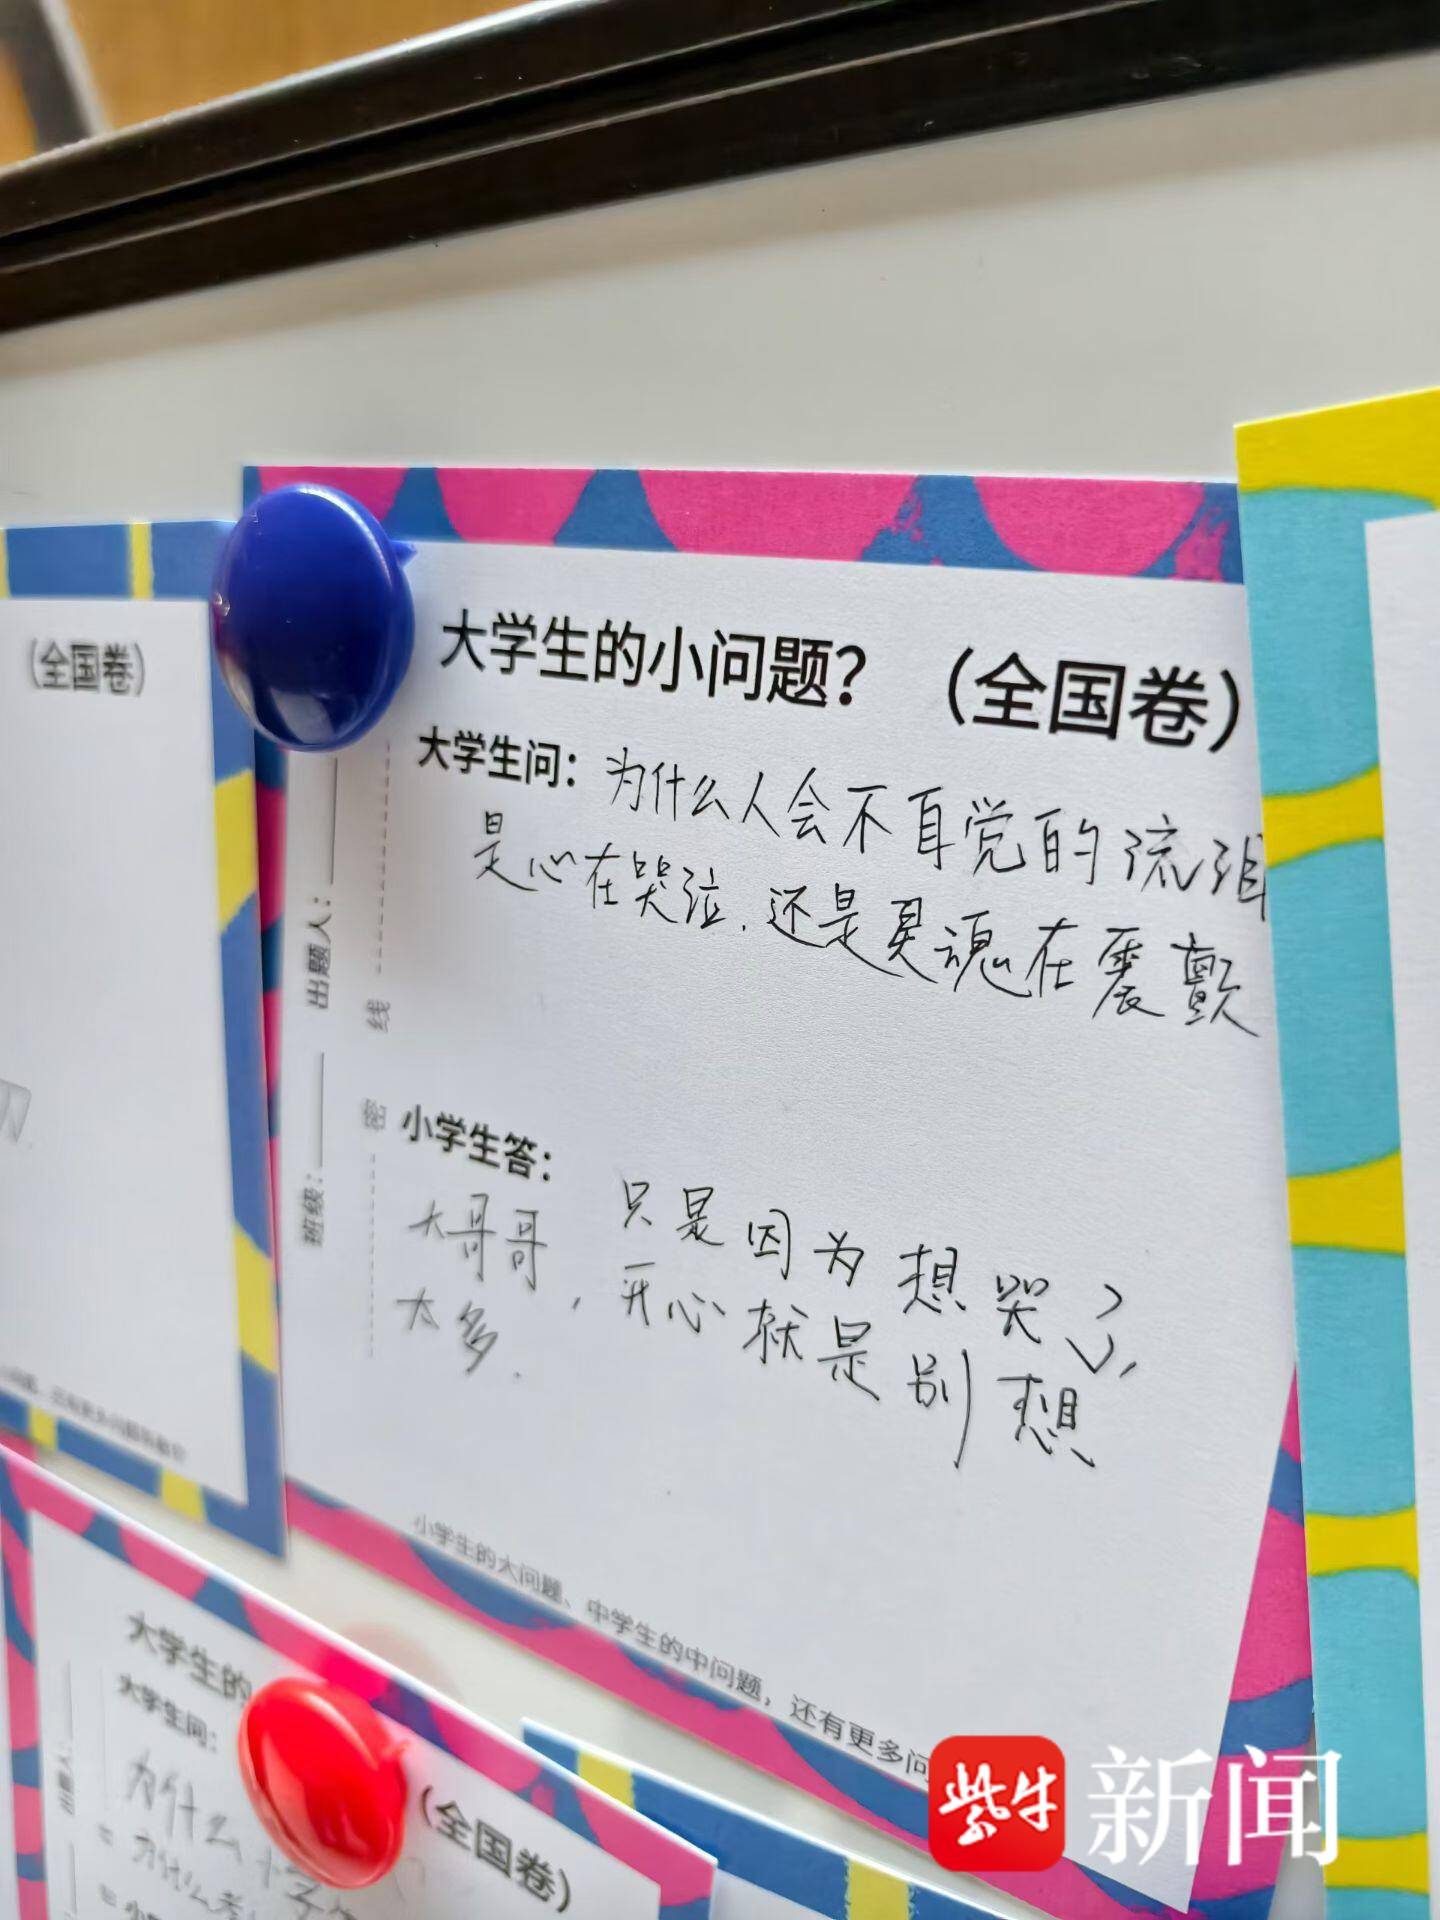 (全国卷)
大学生的小问题？（全国卷）
大学生问：为什么人会不自觉的流泪
是心在哭泣.还是灵魂在震颤
出题人：
班级：
线
密
小学生答：
大哥哥，只是因为想哭了，
开心就是别想
太多.
小学生的大问题、中学生的中问题，还有更多问
大学生的
(全国卷)
大学生问：
为什么
为什么考
紫牛新闻